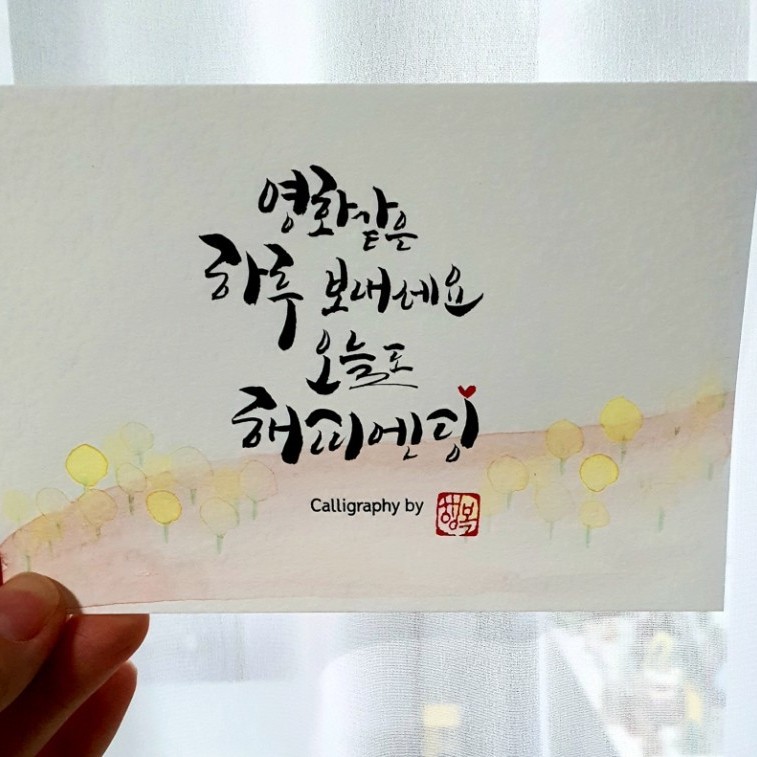 영화같은
하루 보내세요
오늘도
해피엔딩
Calligraphy by 행복